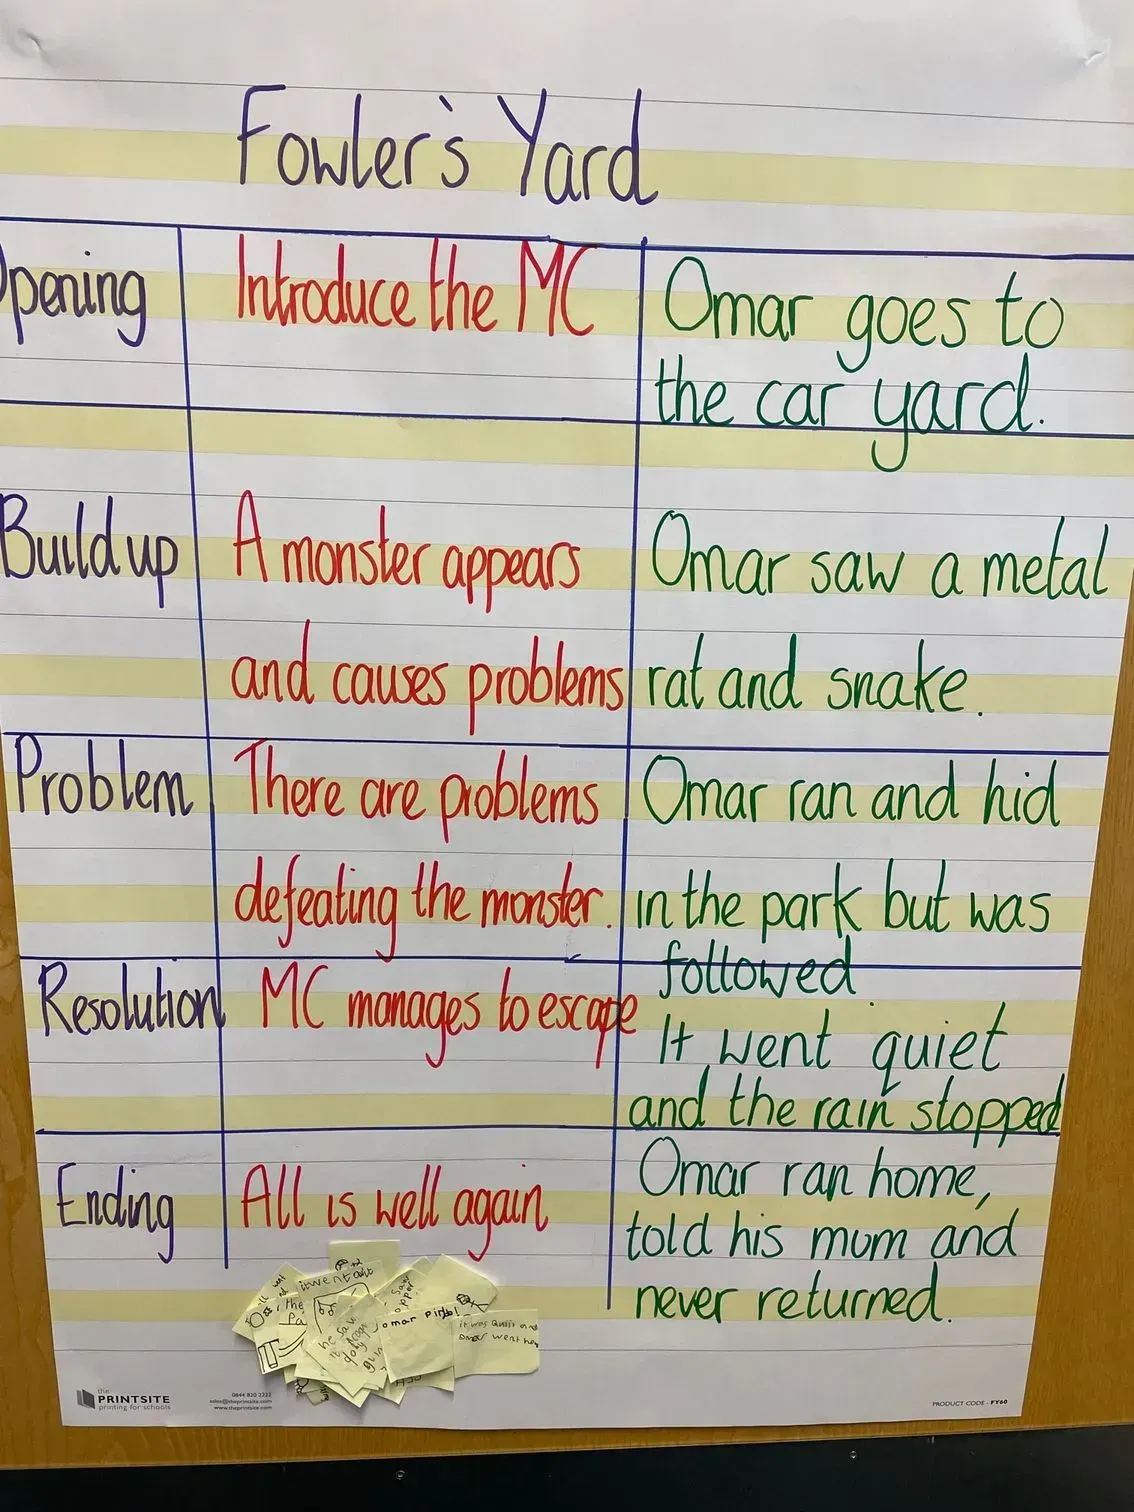 Fowler's Yard
Opening
Introduce the MC
Omar goes to
the car yard.
Build up
A monster appears
and causes problems
Omar saw a metal
rat and snake.
Problem
There are problems
defeating the monster.
Omar ran and hid
in the park but was
followed.
Resolution
MC manages to escape
It went quiet
and the rain stopped
Ending
All is well again
Omar ran home,
told his mum and
never returned.
it went
the
omar
it was
omar went
the
PRINTSITE
printing for schools
0844 820 2222
sales@theprintsite.com
www.theprintsite.com
PRODUCT CODE - FY60